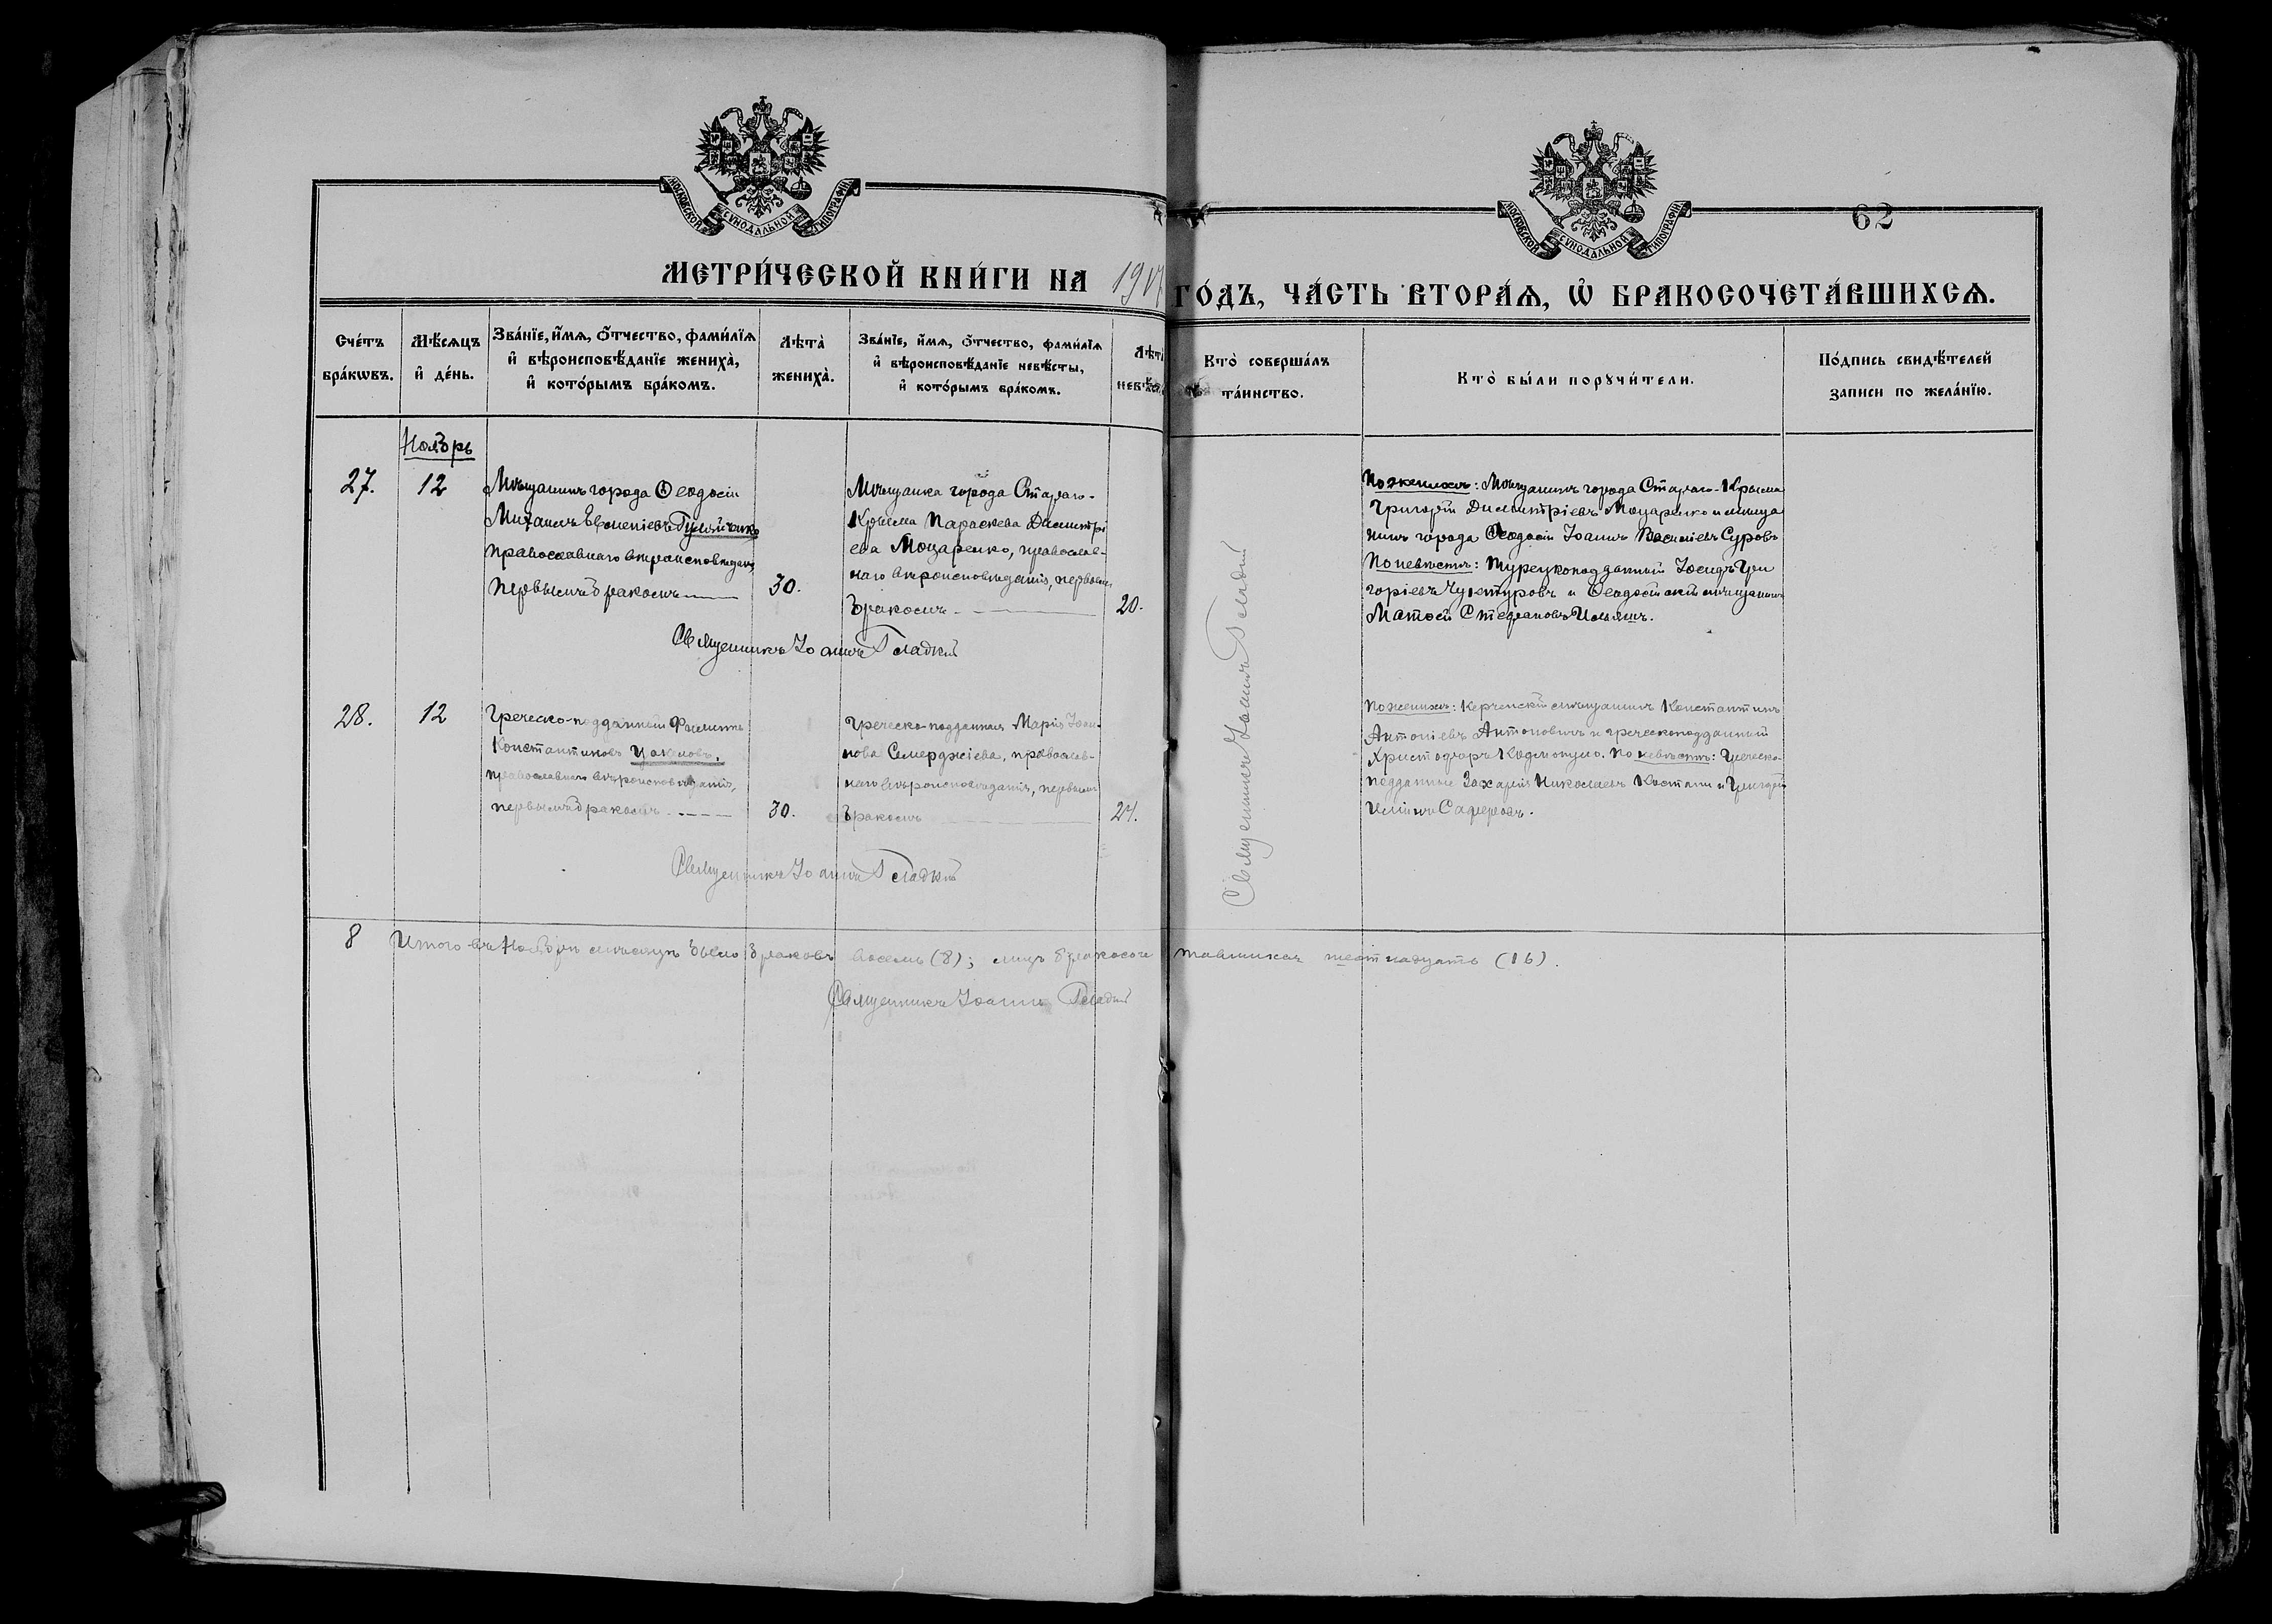 МОСКОВСКОЙ СУНОДАЛЬНОЙ ТИПОГРАФІИ
МОСКОВСКОЙ СУНОДАЛЬНОЙ ТИПОГРАФІИ
62
МЕТРИ́ЧЕСКОЙ КНИ́ГИ НА 1917 ГО́ДЪ, ЧА́СТЬ ВТОРА́Ѧ, Ѡ҆ БРАКОСОЧЕТА́ВШИХСѦ.
Сче́тъ бра́кѡвъ.
Мѣ́сяцъ и҆ де́нь.
Зва́нїе, и҆́мѧ, ѻ҆́тчество, фами́лїѧ
и҆ вѣроисповѣ́данїе жениха̀,
и҆ кото́рымъ бра́комъ.
Лѣ́та̀ жениха̀.
Зва́нїе, и҆́мѧ, ѻ҆́тчество, фами́лїѧ
и҆ вѣроисповѣ́данїе невѣ́сты,
и҆ кото́рымъ бра́комъ.
Лѣ́та̀
Кто̀ соверша́лъ
та́инство.
Кто̀ бы́ли порꙋчи́тели.
По́дпись свидѣ́телей
записи по жела́нїю.
Ноябрь
27.
12
Мѣщанинъ города Ѳеодосіи
Михаилъ
православнаго вѣроисповѣданія
первымъ бракомъ
30.
Мѣщанка города Стараго-
Крыма Параскева Димитрі
ева Моцаренко, православ-
наго вѣроисповѣданія, первымъ
бракомъ
20.
Священникъ Іоаннъ Гладкій
По женихѣ: Мѣщанинъ города Стараго-Крыма
Григорій Димитріевъ Моцаренко и мѣща
нинъ города Ѳеодосіи Іоаннъ Василіевъ Суровъ
По невѣстѣ: турецкоподданный Іосифъ Гри
горіевъ и Ѳеодосійскій мѣщанинъ
Матөей Стефановъ
Священникъ Іоаннъ Гладкій
28.
12
Греческо-подданный Филиппъ
Константиновъ Цакеловъ,
православнаго вѣроисповѣданія,
первымъ бракомъ
30.
Греческо-подданная Марія Іоан-
нова Семерджіева, православ-
наго вѣроисповѣданія, первымъ
бракомъ
24.
Священникъ Іоаннъ Гладкій
По женихѣ: Керченскій мѣщанинъ Константинъ
Антоніевъ Антоновичъ и греческоподданный
Христофоръ По невѣстѣ: Греческо-
подданные Захарія Николаевъ и
8 Итого въ Ноябрѣ мѣсяцѣ было браковъ восемь (8); лицъ бракосоче тавшихся шестнадцать (16).
Священникъ Іоаннъ Гладкій